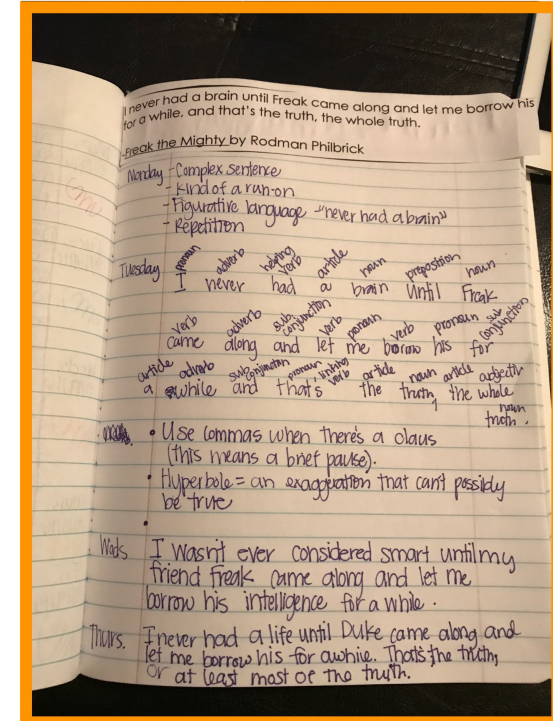 I never had a brain until Freak came along and let me borrow his
for a while, and that's the truth, the whole truth.
-Freak the Mighty by Rodman Philbrick
Monday - Complex sentence
- Kind of a run-on
- Figurative language - "never had a brain"
- Repetition
pronoun adverb helping verb article noun preposition noun
Tuesday I never had a brain until Freak
verb adverb sub. conjunction verb pronoun verb pronoun sub conjunction
came along and let me borow his for
article adverb sub conjunction pronoun linking verb article noun article adjectiv
a while and that's the truth, the whole
noun
truth.
• Use commas when there's a claus
(this means a brief pause).
• Hyperbole = an exaggeration that can't possibly
be true
•
Weds I wasn't ever considered smart until my
friend freak came along and let me
borrow his intelligence for a while.
Thurs. I never had a life until Duke came along and
let me borrow his for awhile. That's the truth,
or at least most of the truth.